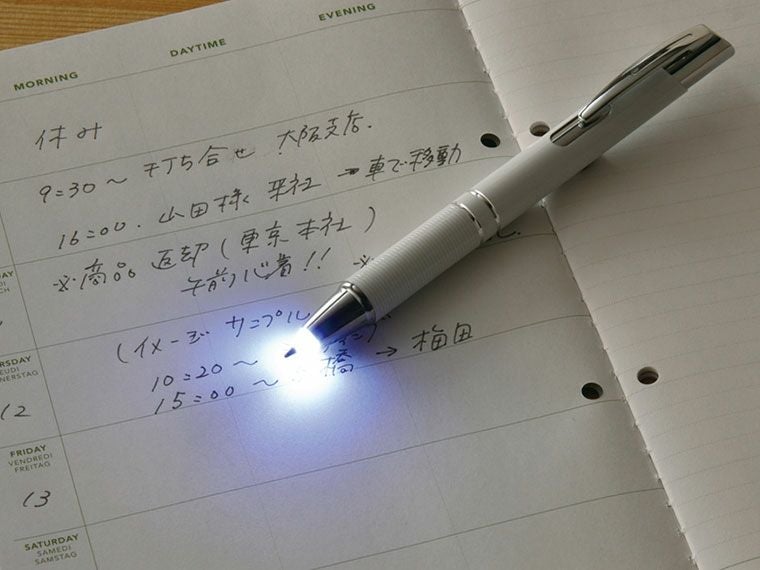 MORNING DAYTIME EVENING
休み
9:30～ 打ち合せ 大阪支店.
16:00. 山田様 来社 → 車で移動
※商品返却(東京本社)
午前必着!! ※
(イメージ サンプル
10:20～
15:00～ 橋 → 梅田
RSDAY
EUDI
NERSTAG
12
FRIDAY
VENDREDI
FREITAG
13
SATURDAY
SAMEDI
SAMSTAG